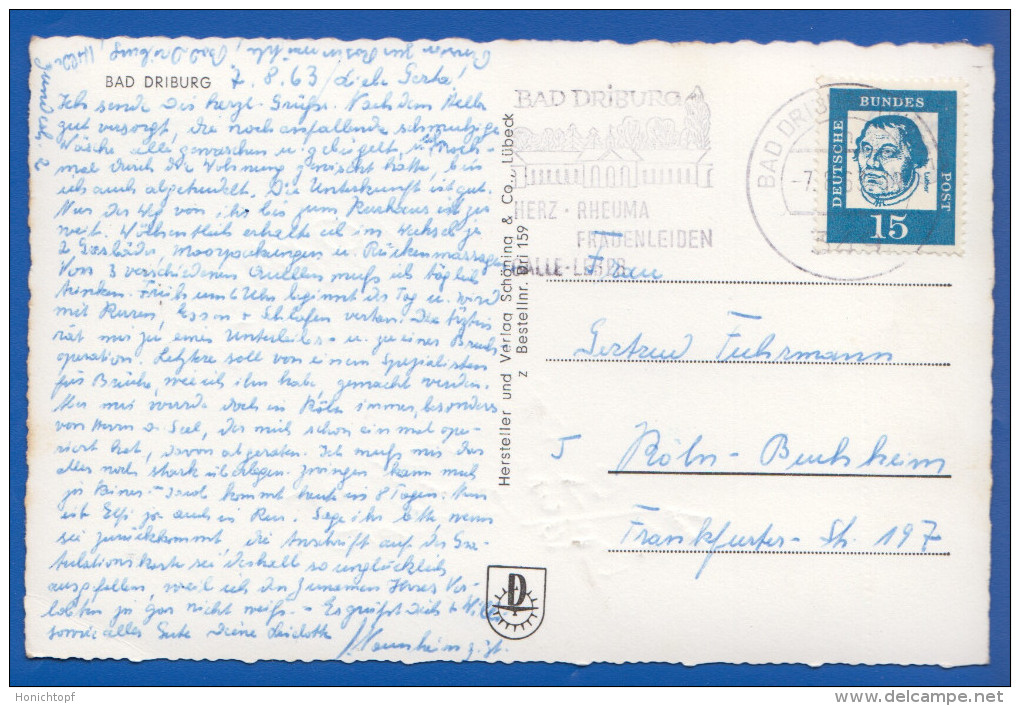 BAD DRIBURG 7.8.63 / Liebe Gerta!
Ich sende Dir herzl. Grüße. Nachdem ich Willi
gut versorgt, die noch anfallende schmutzige
Wäsche alle gewaschen u. gebügelt u. noch
mal durch die Wohnung gewischt hatte, bin
ich auch abgehundelt. Die Unterkunft ist gut.
Nur der Weg von ihr bis zum Kurhaus ist zu
weit. Wöchentlich erhalte ich im Wechsel je
2 Gasbäder, Moorpackungen u. Rückenmassagen
Von 3 verschiedenen Quellen muß ich täglich
trinken. Früh um 6 Uhr beginnt der Tag u. wird
mit Kuren, Essen + Schlafen vertan. Die Ärztin
rät mir zu einer Unterleibs- u. zu einer Bruch
operation. Letztere soll von einem Spezialisten
für Brüche, wie ich ihn habe, gemacht werden.
Mir wurde doch in Köln immer, besonders
von Herrn Dr. Seel, der mich schon einmal ope-
riert hat, davon abgeraten. Ich muß mir das
alles noch stark überlegen. Zwingen kann mich
ja keiner. - kommt heute in 8 Tagen. Nun
ist Elfi ja auch in Kur. Sage ihr bitte, wenn
sie zurückkommt die Anschrift auf der Gra-
tulationskarte sei deshalb so unglücklich
ausgefallen, weil ich den Zunamen ihres Ver-
lobten ja gar nicht weiß. - Es grüßt Dich + Willi
sowie alles Gute Deine Liselotte
Mannheim z.Zt.
Bad Driburg,
Hersteller und Verlag Schöning & Co., Lübeck
z Bestellnr. Dri 159
BAD DRIBURG
HERZ · RHEUMA
FRAUENLEIDEN
GALLE · LEBER
BAD DRIBURG
DEUTSCHE BUNDES POST
Luther
15
Frau
Gertrud Fuhrmann
5 Köln-Buchheim
Frankfurter-Str. 197
D
Honichtopf
www.delcampe.net